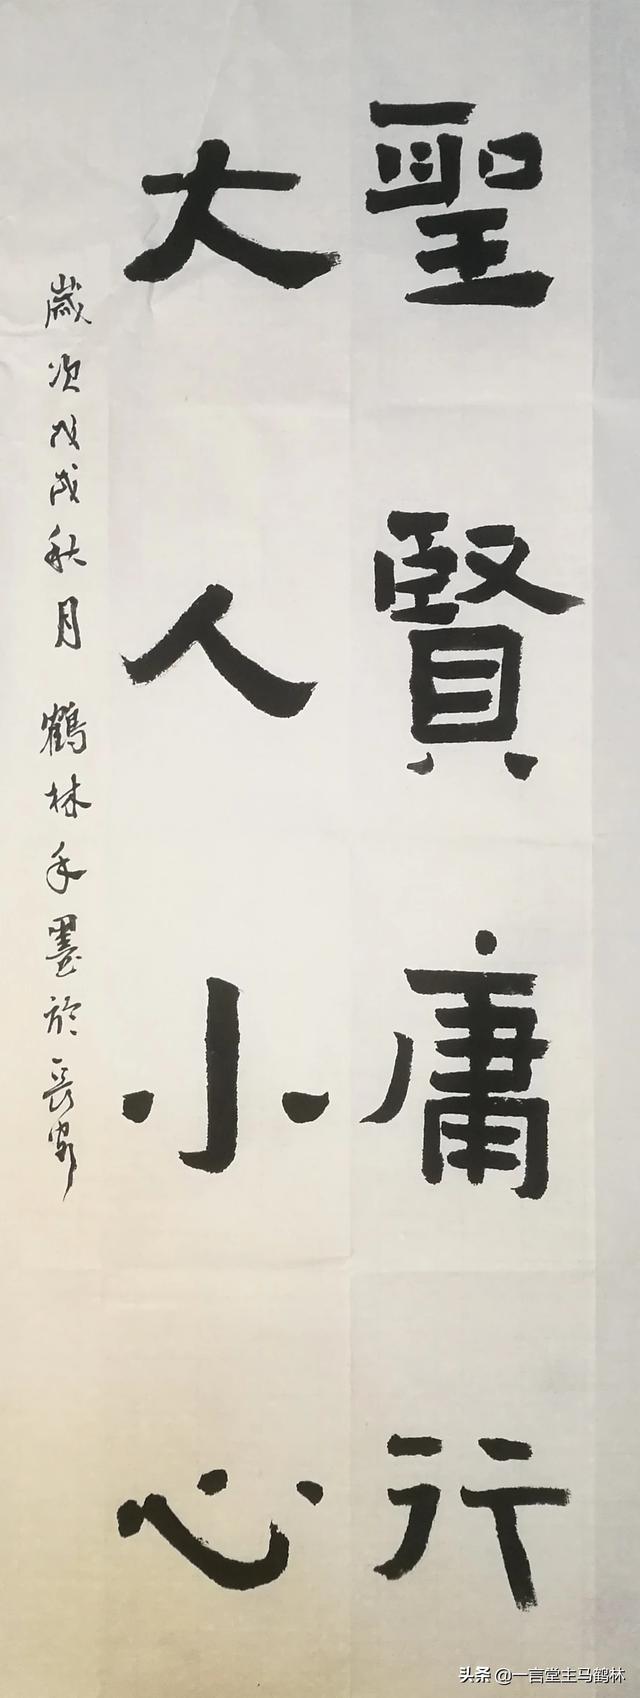 聖賢庸行
大人小心
歲次戊戌秋月 鶴林手墨於長安
头条 @一言堂主马鹤林